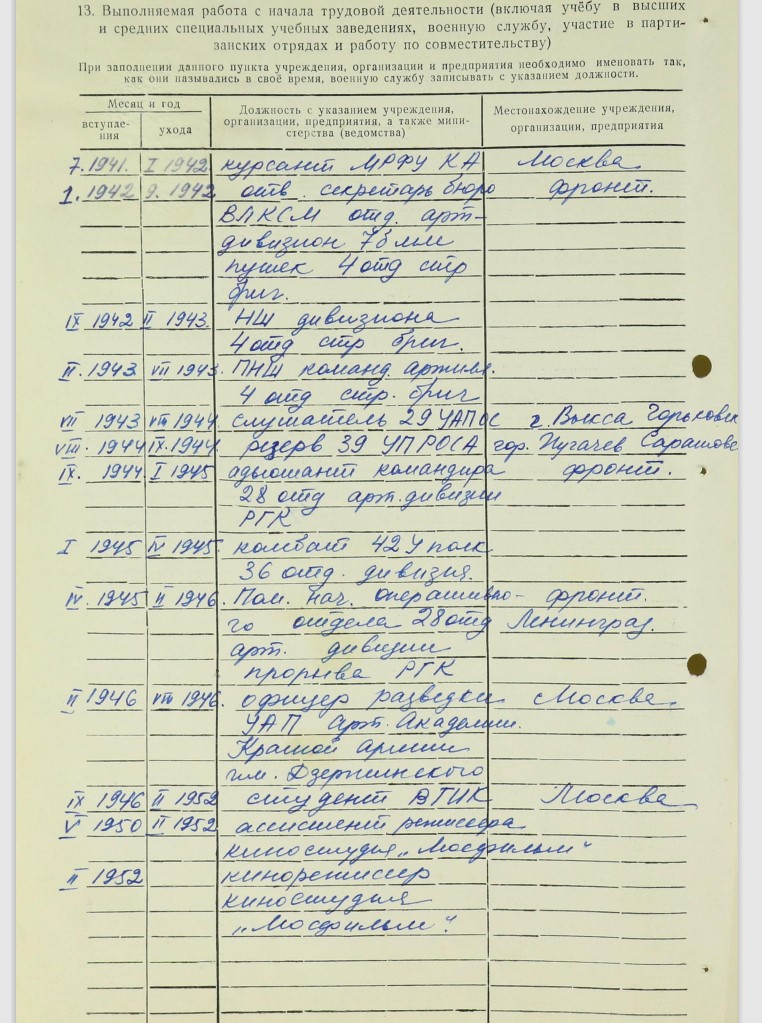 13. Выполняемая работа с начала трудовой деятельности (включая учёбу в высших
и средних специальных учебных заведениях, военную службу, участие в парти-
занских отрядах и работу по совместительству)
При заполнении данного пункта учреждения, организации и предприятия необходимо именовать так,
как они назывались в своё время, военную службу записывать с указанием должности.
Месяц и год
вступле-
ния
ухода
Должность с указанием учреждения,
организации, предприятия, а также мини-
стерства (ведомства)
Местонахождение учреждения,
организации, предприятия
7.1941. I 1942 курсант МРФУ КА Москва
1.1942 9.1942 отв. секретарь бюро фронт.
ВЛКСМ отд. арт-
дивизион 76 мм
пушек 4 отд стр
бриг.
IX 1942 II 1943. НШ дивизиона
4 отд стр бриг.
II.1943 VII 1943. ПНШ команд. артилл.
4 отд стр. бриг
VII 1943 VIII 1944. слушатель 29 УАПОС г. Выкса Горьковск
VIII. 1944 IX.1944. резерв 39 УПРОСА гор. Пугачев Саратовс
IX. 1944 I 1945 адьютант командира фронт.
28 отд арт. дивизии
РГК
I 1945 IV 1945. комбат 42 У полк
36 отд. дивизия.
IV. 1945 II 1946. Пом. нач. оперативно- фронт.
го отдела 28 отд Ленинград.
арт. дивизии
прорыва РГК
II 1946 VIII 1946. офицер разведки Москва.
УАП арт. Академии.
Красной армии
им. Дзержинского
IX 1946 II 1952 студент ВГИК Москва
V 1950 II 1952 ассистент режиссера
киностудия „Мосфильм“
II 1952 кинорежиссер
киностудия
„Мосфильм“.